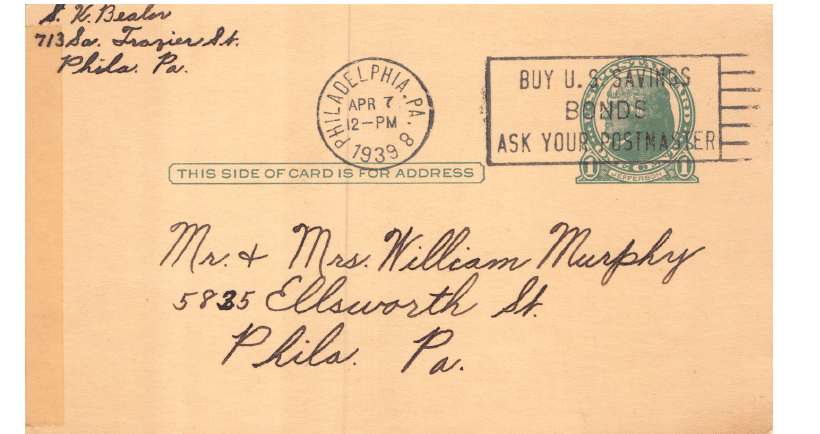 S. K. Bealor
713 So. Frazier St.
Phila. Pa.
PHILADELPHIA, PA.
APR 7
12-PM
1939
8
BUY U.S. SAVINGS
BONDS
ASK YOUR POSTMASTER
1 1
JEFFERSON
THIS SIDE OF CARD IS FOR ADDRESS
Mr. & Mrs. William Murphy
5835 Ellsworth St.
Phila. Pa.